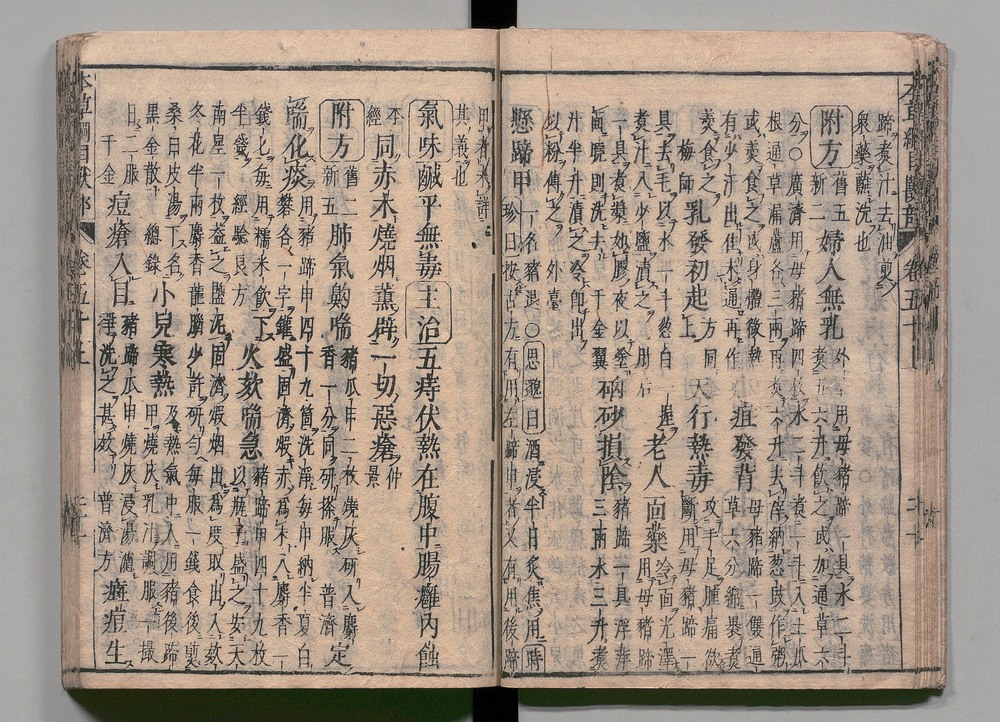 蹄煮汁去油煎
衆藥蘸洗也
附方舊五新二婦人無乳外臺用母猪蹄一具水二斗煮五六升飲之或加通草六
分○廣濟用母猪蹄四枚水二斗煮一斗入土瓜
根通草漏蘆各三兩再煮六升去滓納葱豉作粥
或羹食之或身體微熱
有少汗出佳未通再作癰疽發背母猪蹄一雙通草六分綿裹煮
羹食之梅師乳發初起上方同天行熱毒攻手足腫痛欲斷用母猪蹄一
具去毛以水一斗葱白一握老人面藥令面光澤用母猪蹄
一具煮漿如膠夜以塗
面曉則洗去千金翼硇砂損陰猪蹄一具浮萍三兩水三升煮
汁半升漬之瘡即出
以粉傅之外臺
懸蹄甲一名猪退○思邈曰酒浸半日炙焦用時
珍曰按古方有用左蹄甲者又有用後蹄
甲者未詳
其義也
氣味鹹平無毒主治五痔伏熱在腹中腸癰內蝕
本經同赤木燒烟薰辟一切惡瘡仲景
附方舊二新五肺氣齁喘猪爪甲二枚燒灰研入麝香一分同研茶服普濟定
喘化痰用猪蹄甲四十九箇洗淨每甲納半夏白
礬各一字罐盛固濟煅赤為末入麝香一
錢匕每用糯米飲下
半錢經驗良方久欬喘急猪蹄甲四十九枚以瓶子盛之安天
南星一枚盖之鹽泥固濟煅烟出為度取出入欬
冬花半兩麝香龍腦少許研勻每服一錢食後煎
桑白皮湯下名
黑金散總錄小兒寒熱及熱氣中人用猪後蹄甲燒灰乳汁調服一撮
日二服千金痘瘡入目猪蹄爪甲燒灰浸湯濾淨洗之甚妙普濟方癍痘生